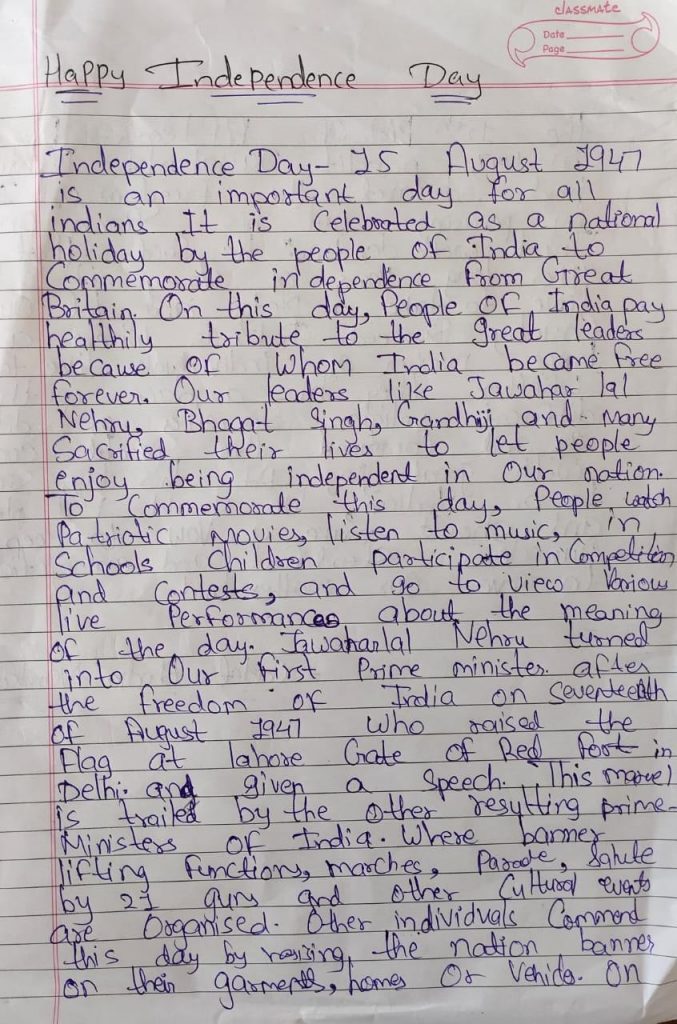 classmate
Date
Page
Happy Independence Day
Independence Day- 15 August 1947
is an important day for all
indians It is Celebrated as a national
holiday by the people of India to
Commemorate independence from Great
Britain. On this day, People OF India pay
healthily tribute to the great leaders
because OF whom India became free
forever. Our leaders like Jawahar lal
Nehru, Bhagat Singh, Gandhiji and many
Sacrified their lives to let people
enjoy being independent in Our nation.
To Commemorate this day, People watch
Patriotic Movies, listen to music, in
Schools Children participate in Competition
and Contests, and go to view Various
live Performances about the meaning
of the day. Jawaharlal Nehru turned
into Our first Prime minister after
the freedom of India on Seventeenth
of August 1947 who raised the
Flag at lahore Gate of Red Fort in
Delhi and given a Speech. This
is trailed by the Other resulting prime-
Ministers of India. Where banner
lifting functions, marches, Parade, Salute
by 21 guns and other Cultural events
are Organised. Other individuals Commend
this day by the nation banner
on their garments, homes Or Vehicle. On